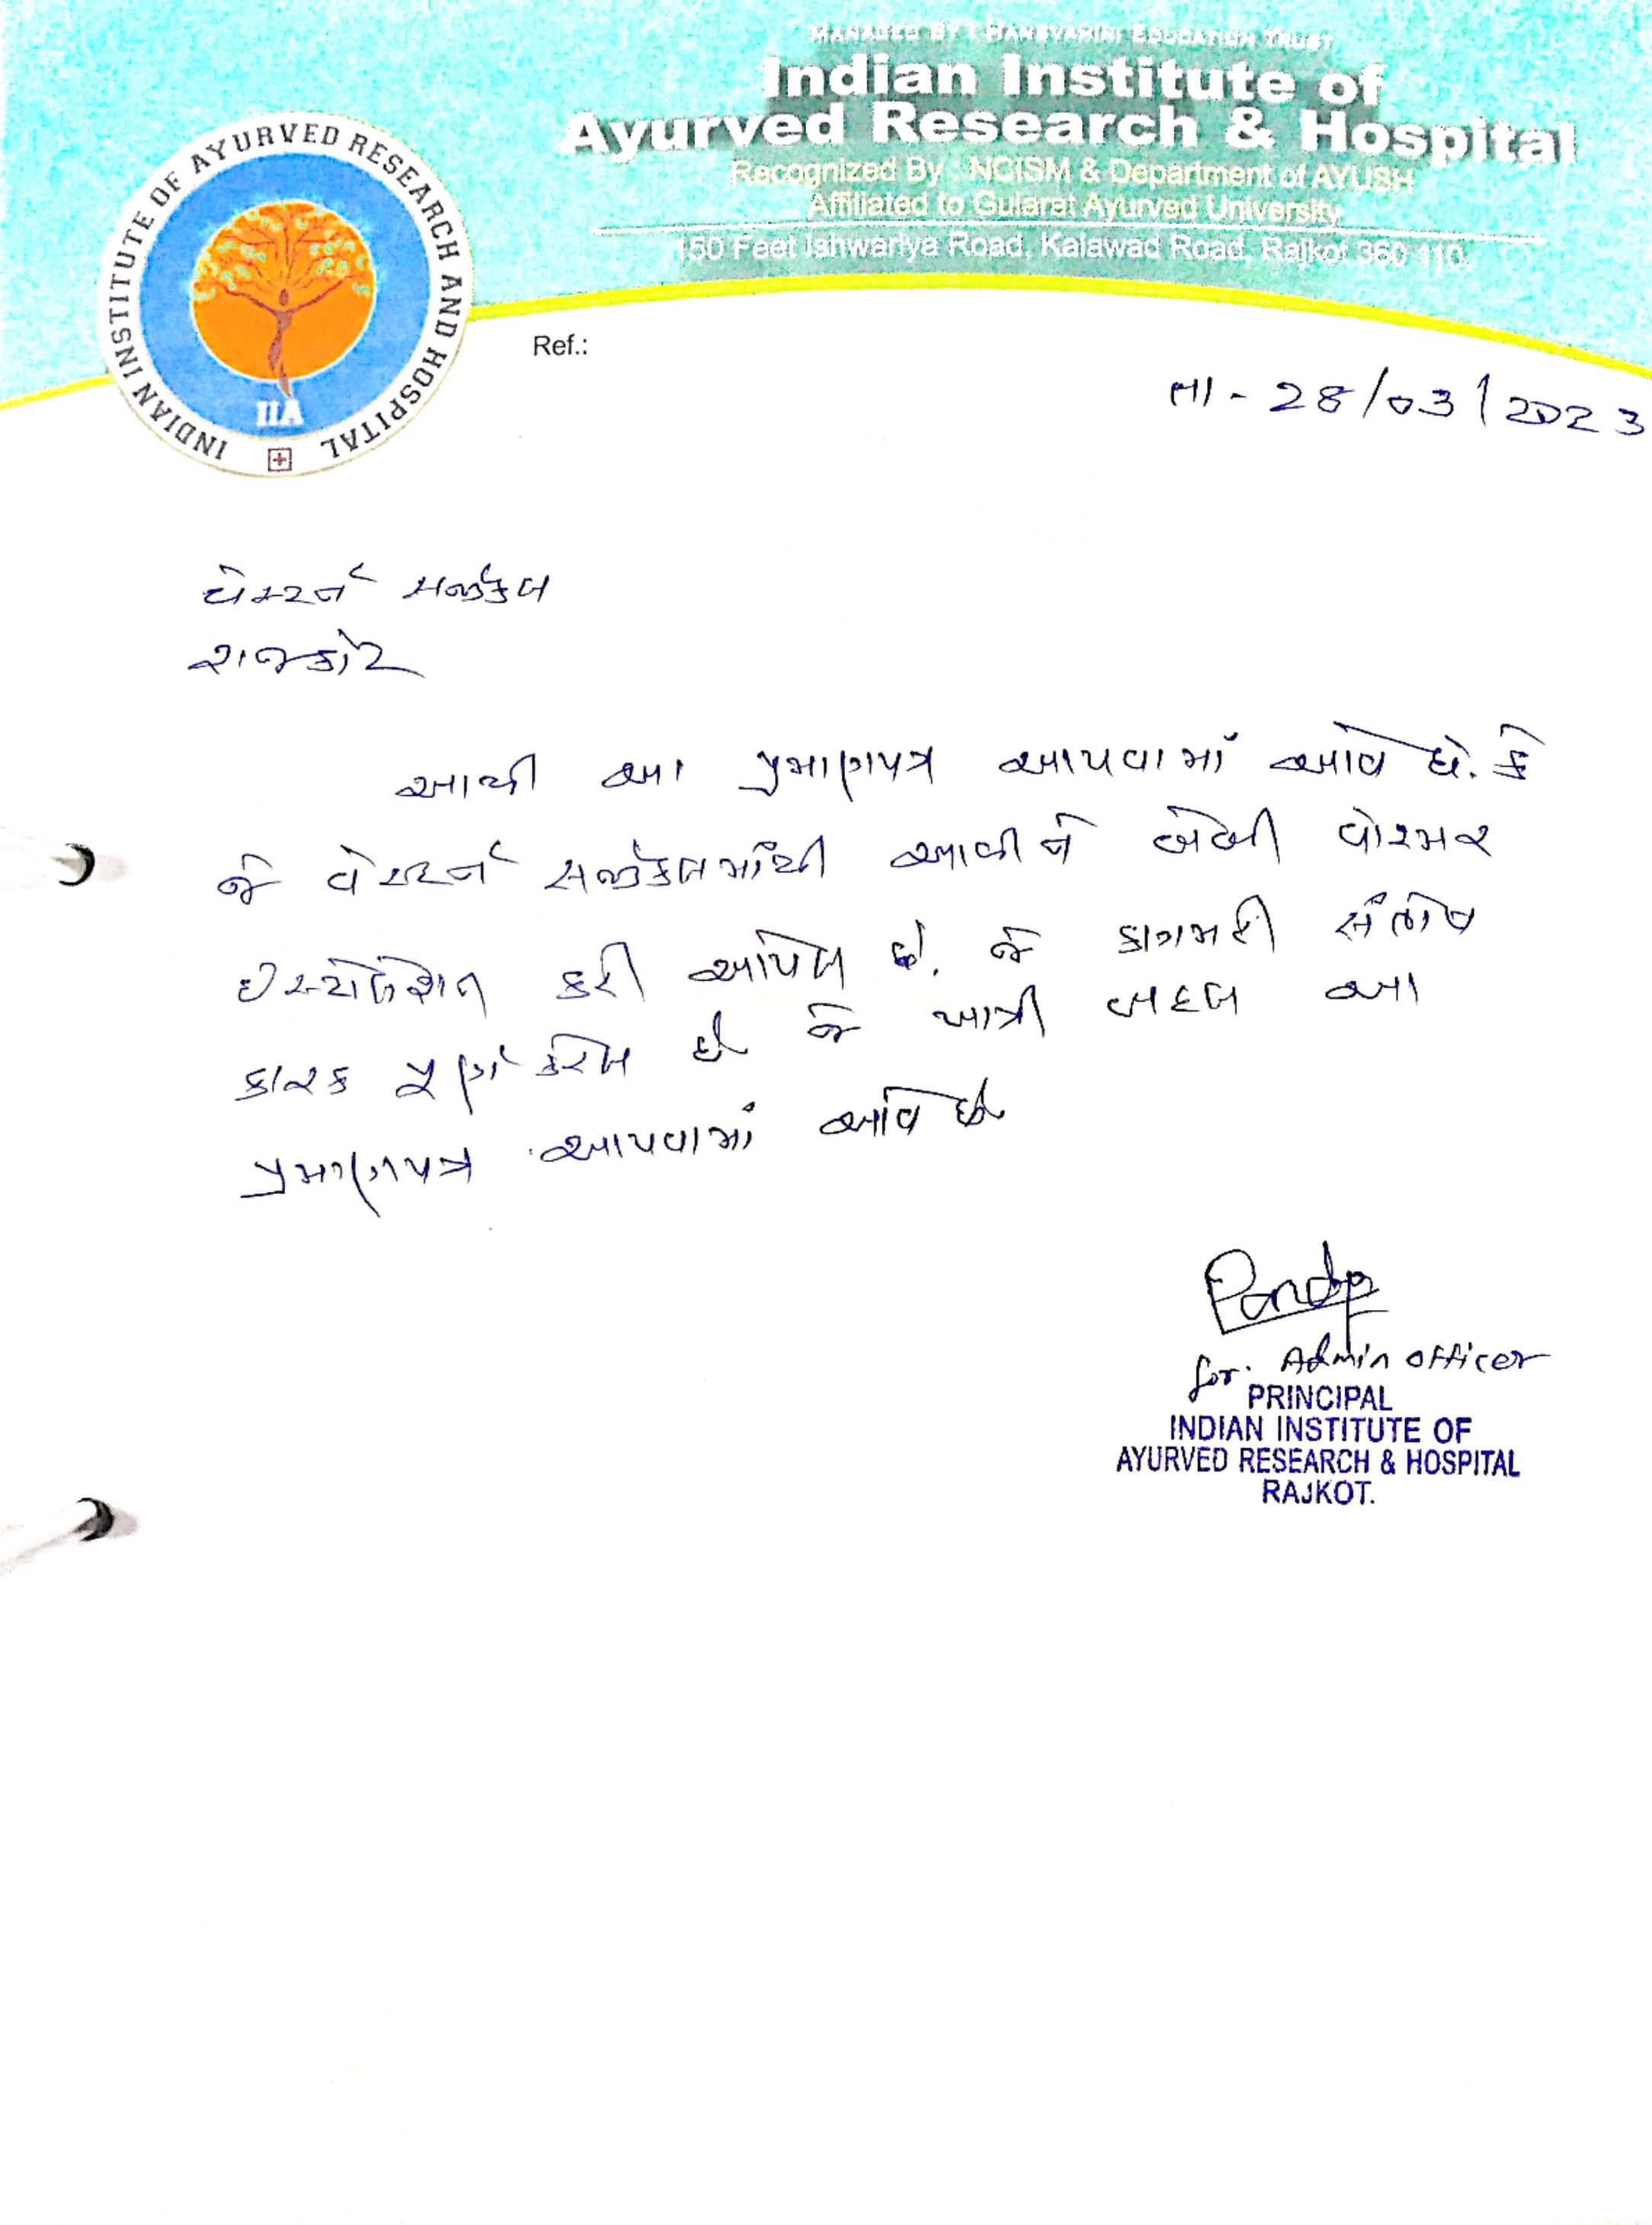 MANAGED BY : HANSVAHINI EDUCATION TRUST
Indian Institute of
Ayurved Research & Hospital
Recognized By : NCISM & Department of AYUSH
Affiliated to Gujarat Ayurved University
150 Feet Ishwariya Road, Kalawad Road, Rajkot 360 110.
INDIAN INSTITUTE OF AYURVED RESEARCH AND HOSPITAL
IIA
Ref.:
તા - 28/03/2023
વેસ્ટર્ન સર્જીકલ
રાજકોટ
આથી આ પ્રમાણપત્ર આપવામાં આવે છે. કે
જે વેસ્ટર્ન સર્જીકલમાંથી આવીને બેબી વોરમર
ઈન્સ્ટોલેશન કરી આપેલ છે. જે કામગરી સંતોષ
કારક પૂર્ણ કરેલ છે જે ખાત્રી બદલ આ
પ્રમાણપત્ર આપવામાં આવે છે
for. Admin officer
PRINCIPAL
INDIAN INSTITUTE OF
AYURVED RESEARCH & HOSPITAL
RAJKOT.